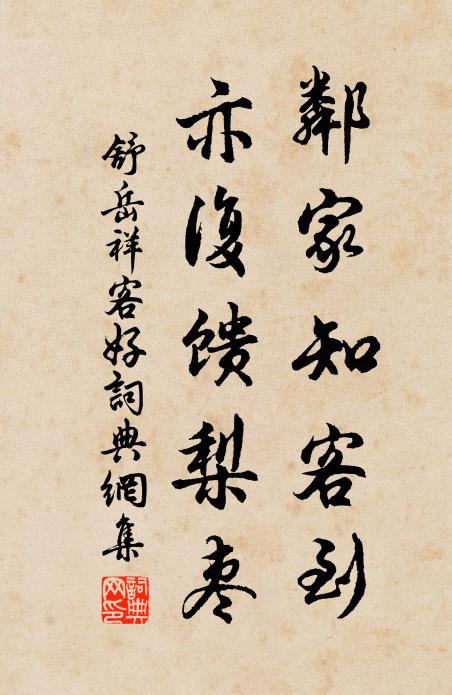 鄰家知客到
亦復饋梨枣
舒岳祥客好詞典網集
詞典网印